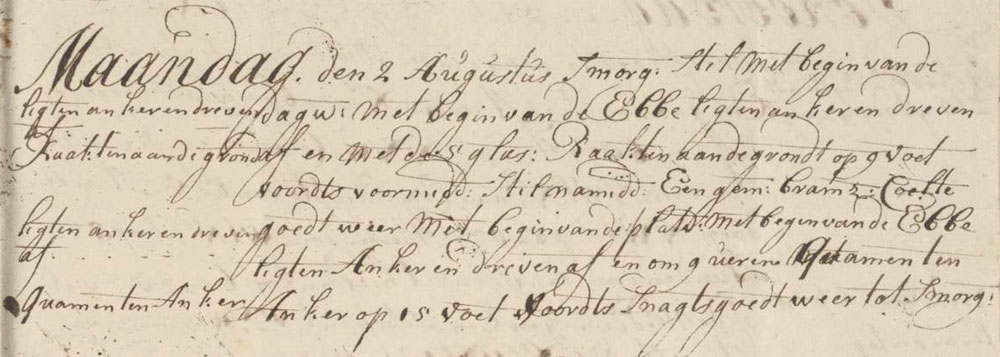 Maandag. den 2 Augustus Smorg: Stil Met begin van de
ligten anker en dreven dagw: Met begin van de Ebbe ligten anker en dreven
af
Raakten aan de grond af en met de 5 glas: Raakten aan de grondt op 9 voet
voordts voormidd: Stil namidd: Een gem: bramz: Coelte
ligten anker en dreven goedt weer Met begin van de plat: Met begin van de Ebbe
af. ligten Anker en dreven af en om 9 ueren Quamen ten
Quamen ten Anker Anker op 15 voet Voordts Snagts goedt weer tot Smorg: